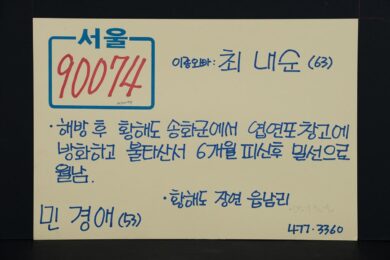 서울
90074
이종오빠: 최 내순 (63)
·해방 후 황해도 송화군에서 엽연포창고에
방화하고 불타산서 6개월 피신후 밀선으로
월남.
·황해도 장연 읍남리
민 경애 (53)
477-3360